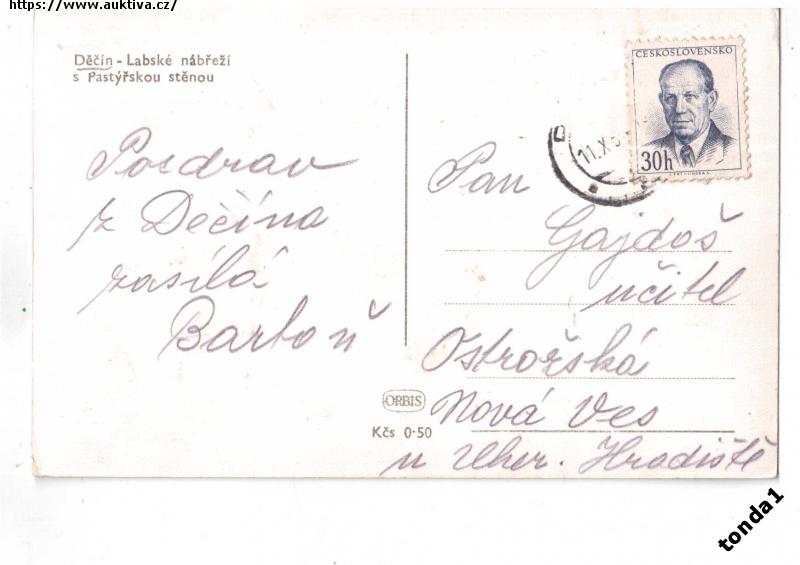 https://www.auktiva.cz/
Děčín - Labské nábřeží
s Pastýřskou stěnou
Pozdrav
z Děčína
zasílá
Bartoň
ČESKOSLOVENSKO
30h
11.X.5
Pan
Gajdoš
učitel
Ostrožská
Nová Ves
u Uher. Hradiště
ORBIS
Kčs 0·50
tonda1